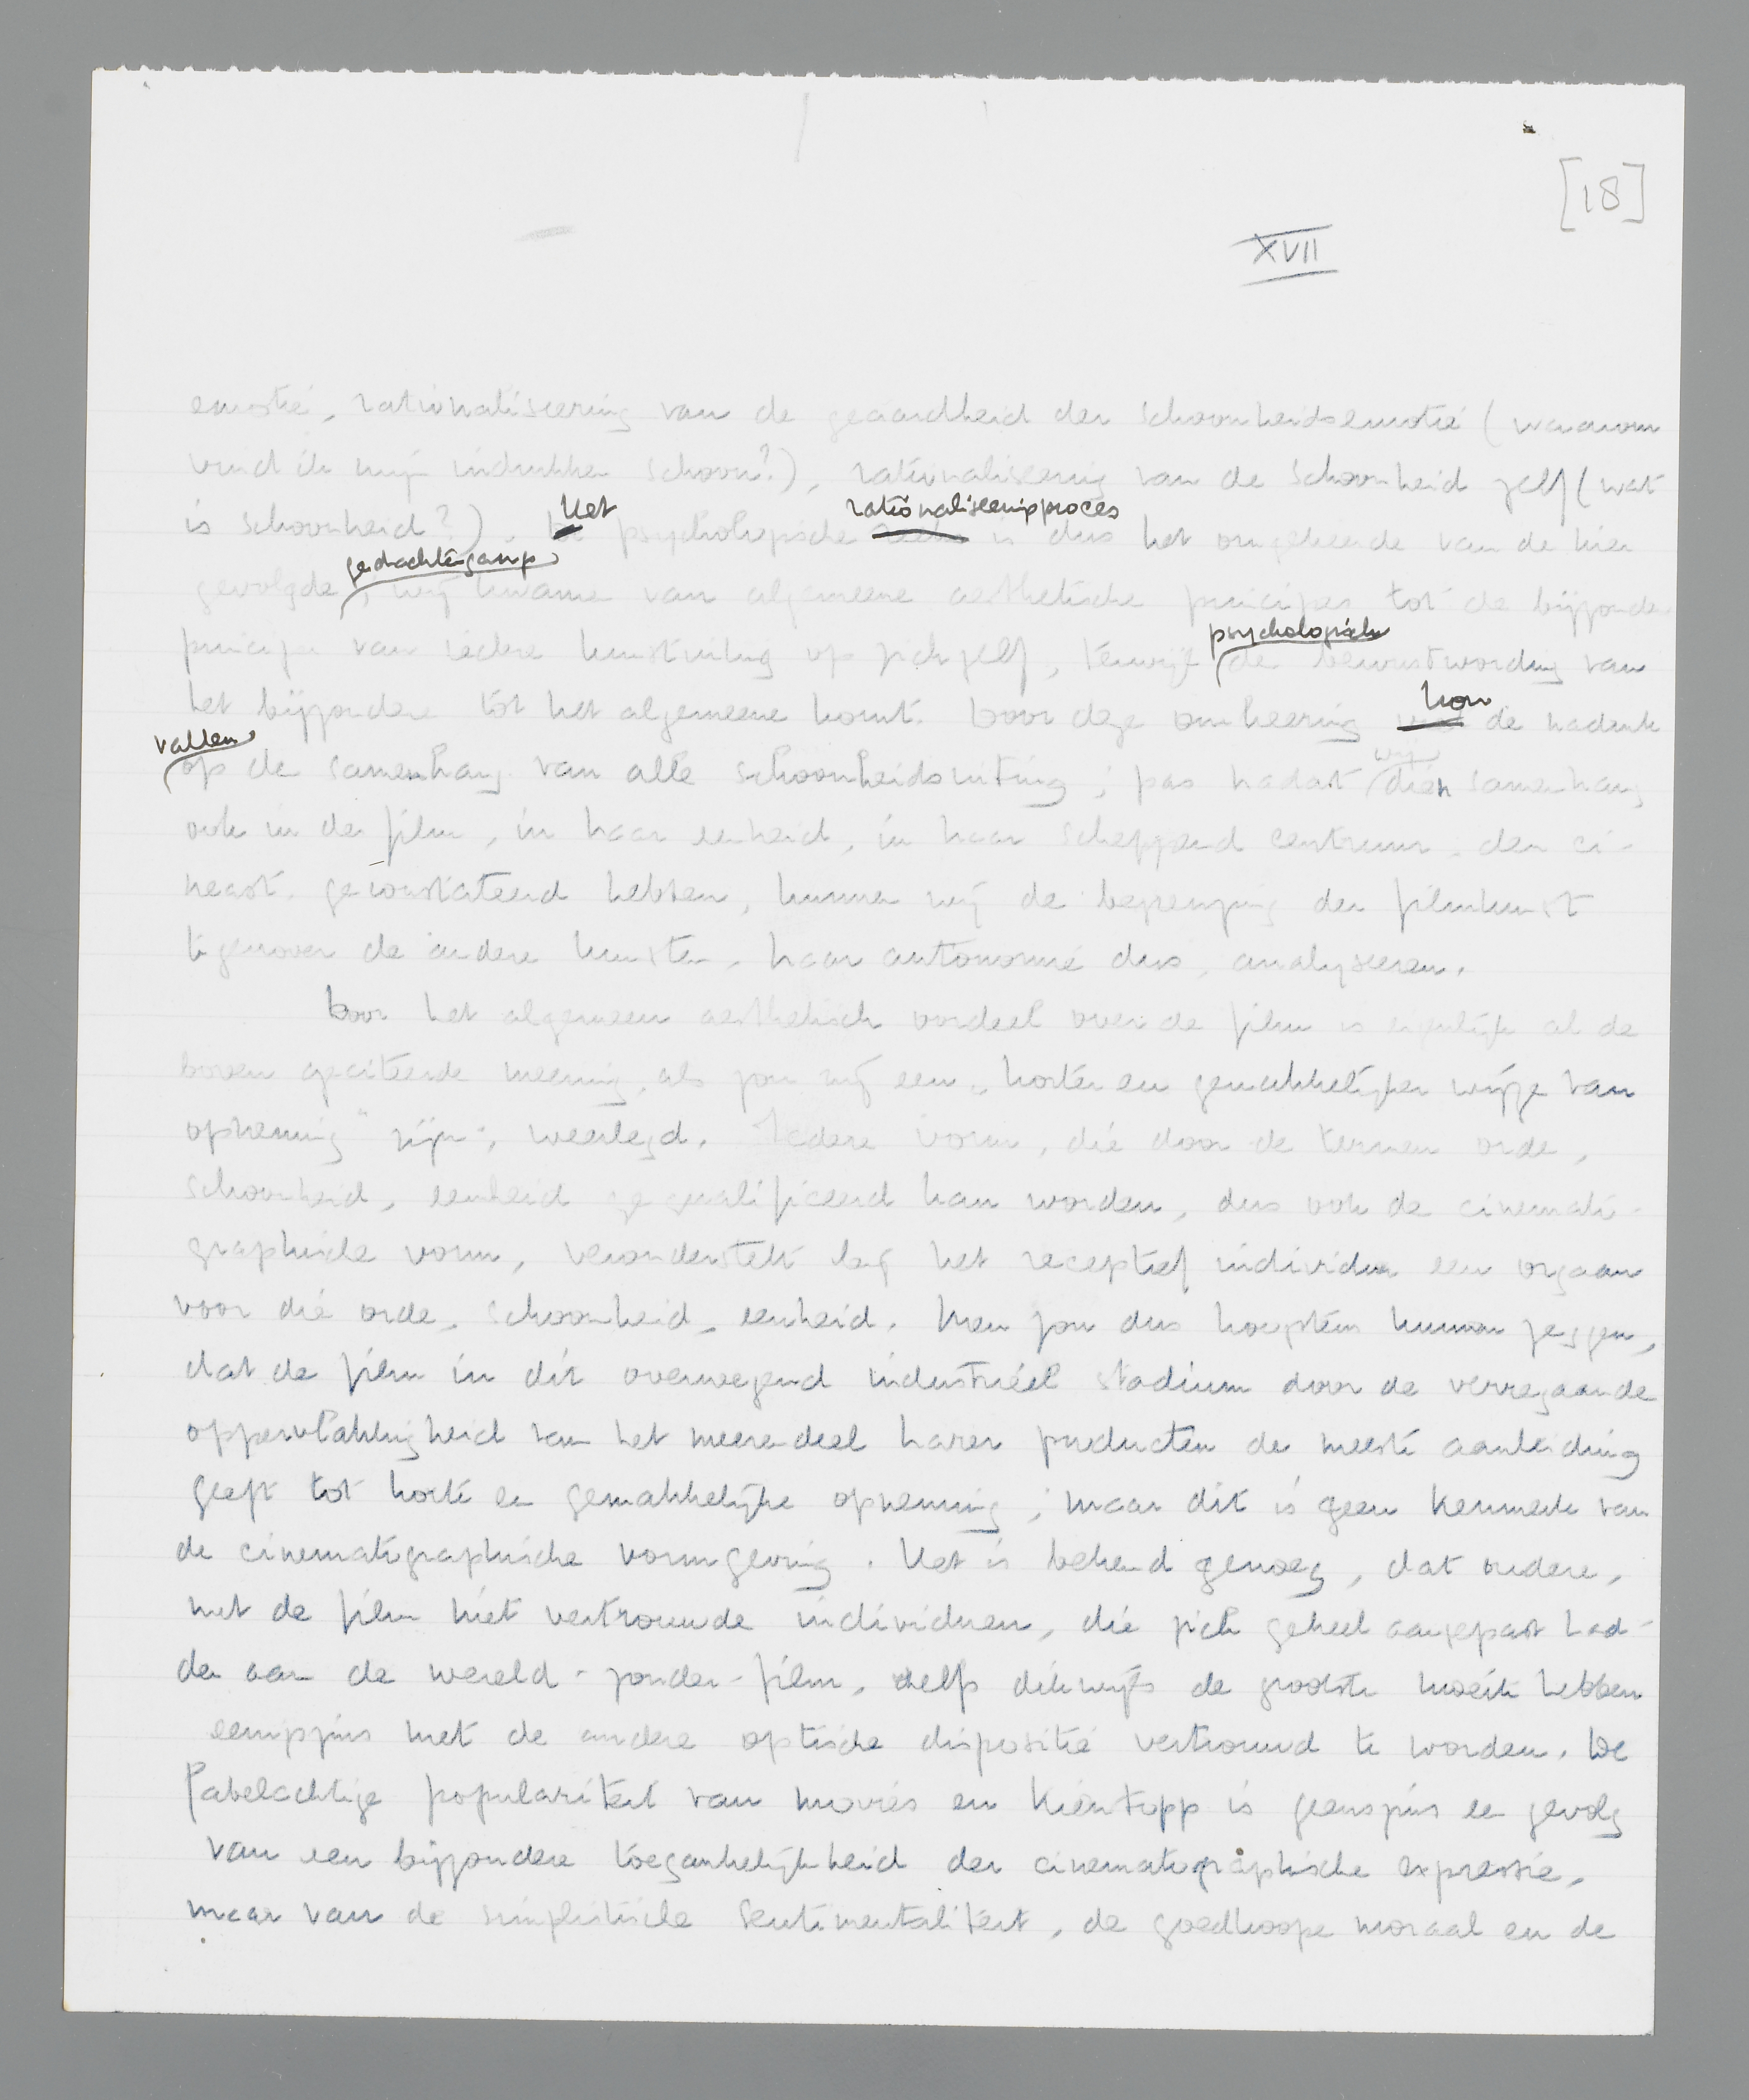 [18]
XVII
emotie, rationaliseering van de geaardheid der schoonheidsemotie (waarom
vind ik mijn indrukken schoon?), rationaliseering van de schoonheid zelf (wat
Het rationaliseeringsproces
is schoonheid?). De psychologische is dus het omgekeerde van de hier
gedachtengang
gevolgde; wij kwamen van algemeene aesthetische principes tot de bijzondere
psychologische
principes van iedere kunstuiting op zichzelf, terwijl de bewustwording van
kon
het bijzondere tot het algemeene komt. Door deze omkeering de nadruk
vallen
wij
op de samenhang van alle schoonheidsuiting; pas nadat dien samenhang
ook in de film, in haar eenheid, in haar scheppend centrum, den ci-
neast, geconstateerd hebben, kunnen wij de begrenzing der filmkunst
tegenover de andere kunsten, haar autonomie dus, analyseeren.
Door het algemeen aesthetisch oordeel over de film is eigenlijk al de
boven geciteerde meening, als zou zij een „korter en gemakkelijker wijze van
opneming" zijn, weerlegd. Iedere vorm, die door de termen orde,
schoonheid, eenheid gequalificeerd kan worden, dus ook de cinemato-
graphische vorm, veronderstelt bij het receptief individu een orgaan
voor die orde, schoonheid, eenheid. Men zou dus hoogstens kunnen zeggen,
dat de film in dit overwegend industriëel stadium door de verregaande
oppervlakkigheid van het meerendeel harer producten de meeste aanleiding
geeft tot korte en gemakkelijke opneming; maar dit is geen kenmerk van
de cinematographische vormgeving. Het is bekend genoeg, dat oudere,
met de film niet vertrouwde individuen, die zich geheel aangepast had-
den aan de wereld-zonder-film, zelfs dikwijls de grootste moeite hebben
eenigszins met de andere optische dispositie vertrouwd te worden. De
fabelachtige populariteit van movies en Kientopp is geenszins een gevolg
van een bijzondere toegankelijkheid der cinematographische expressie,
maar van de simplistische sentimentaliteit, de goedkoope moraal en de